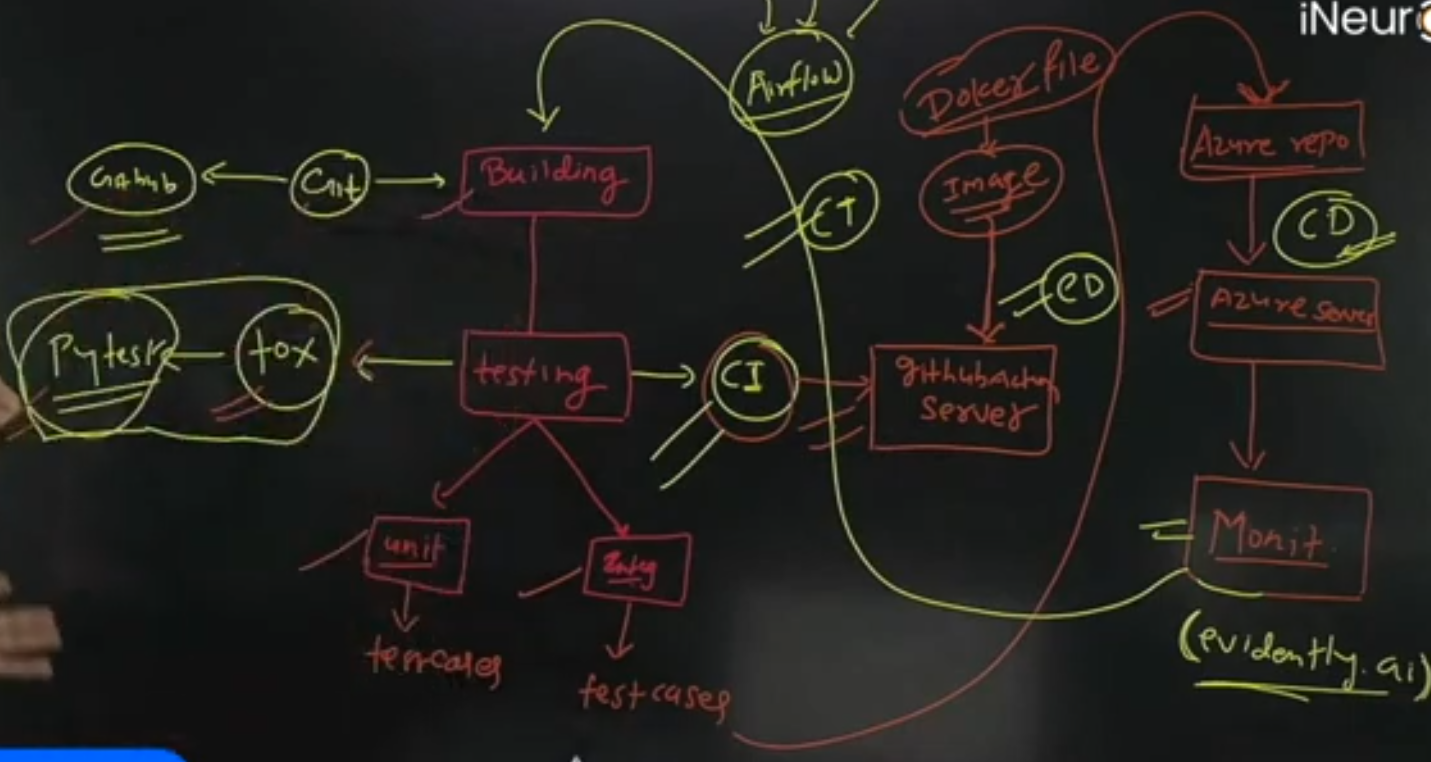 iNeur
Airflow
Doker file
Azure repo
Github
Git
Building
CT
Image
CD
CD
Azure server
Pytest
tox
testing
CI
github Action
server
unit
Integ
Monit.
testcases
testcases
(evidently.ai)